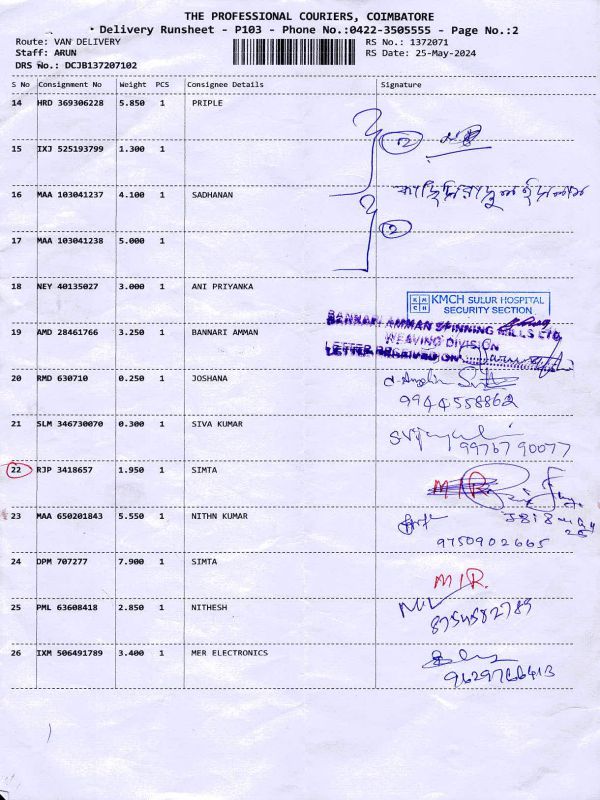 THE PROFESSIONAL COURIERS, COIMBATORE
Delivery Runsheet - P103 - Phone No.:0422-3505555 - Page No.:2
Route: VAN DELIVERY
Staff: ARUN
DRS No.: DCJB137207102
RS No.: 1372071
RS Date: 25-May-2024
S No Consignment No Weight PCS Consignee Details Signature
14 HRD 369306228 5.850 1 PRIPLE
15 IXJ 525193799 1.300 1
16 MAA 103041237 4.100 1 SADHANAN
17 MAA 103041238 5.000 1
2
18 NEY 40135027 3.000 1 ANI PRIYANKA
KMCH SULUR HOSPITAL
SECURITY SECTION
19 AMD 28461766 3.250 1 BANNARI AMMAN
BANNARI AMMAN SPINNING MILLS LTD
WEAVING DIVISION
LETTER RECEIVED ON
20 RMD 630710 0.250 1 JOSHANA
9944558862
21 SLM 346730070 0.300 1 SIVA KUMAR
99767 90077
22 RJP 3418657 1.950 1 SIMTA
MIR.
23 MAA 650201843 5.550 1 NITHN KUMAR
9750902665
24 DPM 707277 7.900 1 SIMTA
MIR.
25 PML 63608418 2.850 1 NITHESH
8754582789
26 IXM 506491789 3.400 1 MER ELECTRONICS
9629766413